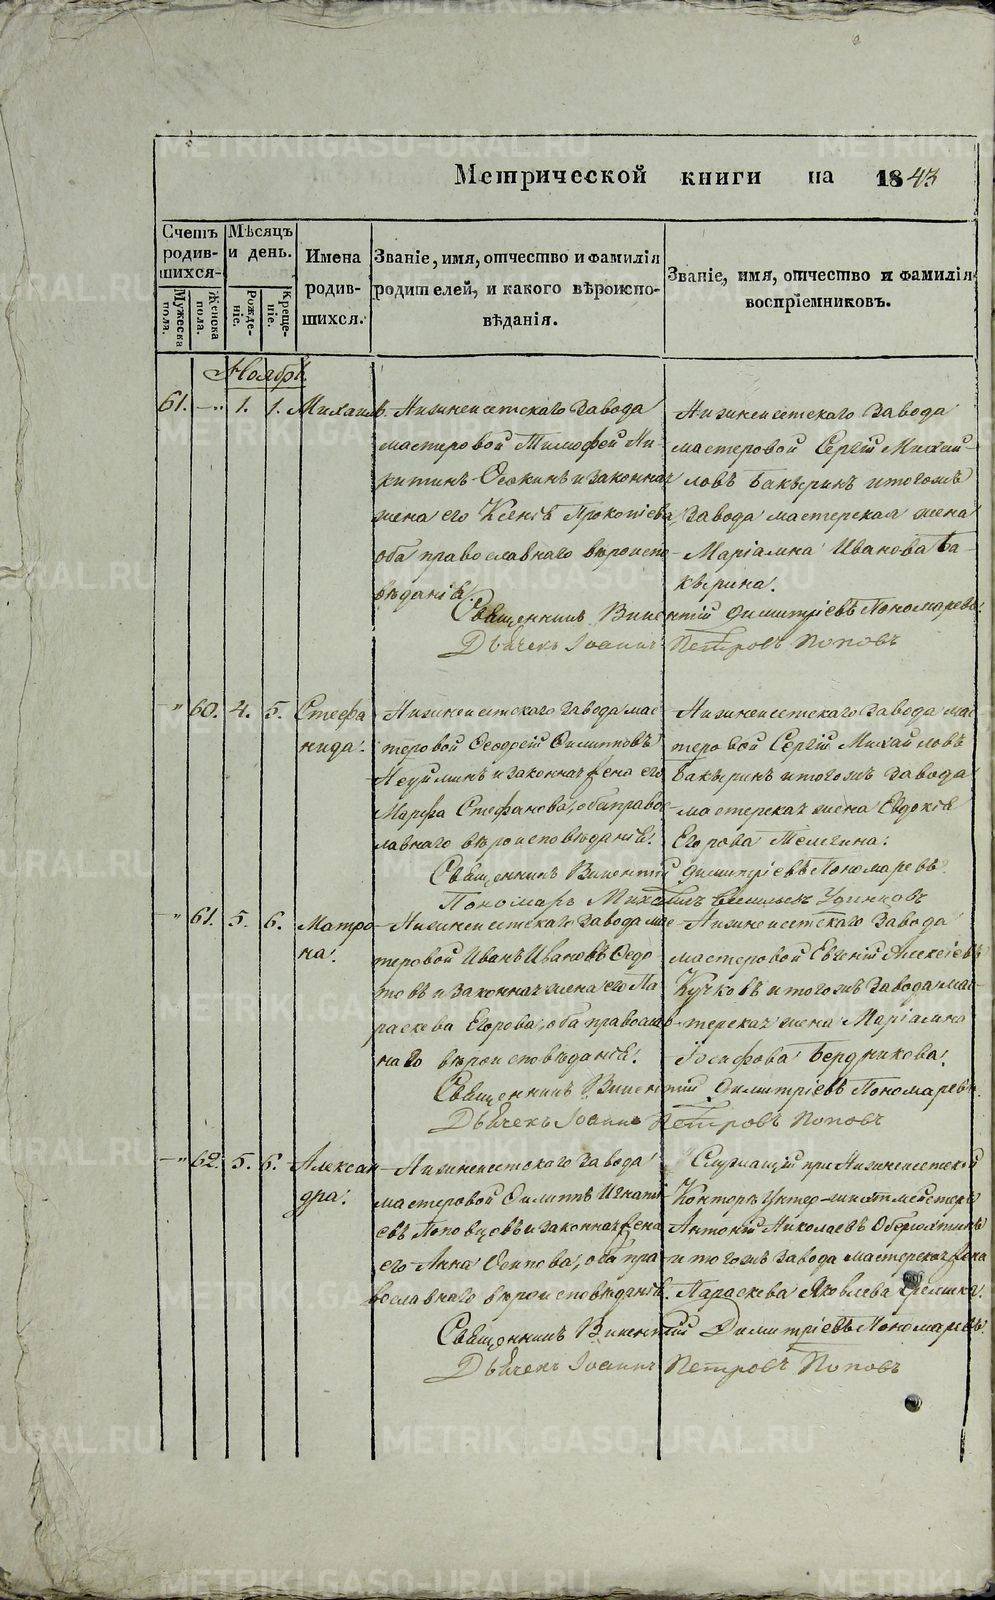 Метрической книги на 1843
Счетъ родив-шихся.
Мужеска пола.
Женска пола.
Мѣсяцъ и день.
Рожде-ніе.
Креще-ніе.
Имена родив-шихся.
Званіе, имя, отчество и фамилія родителей, и какого вѣроиспо-вѣданія.
Званіе, имя, отчество и фамилія воспріемниковъ.
Ноябрь
61. —" 1. 1. Михаилъ.
Нижнеисетскаго Завода
мастеровой Тимофей Ни-
китинъ Осокинъ и законная
жена его Ксенія Прокопіева
оба православнаго вѣроиспо-
вѣданія.
Нижнеисетскаго Завода
мастеровой Сергій Михай-
ловъ Бакѣринъ и тогожъ
Завода мастерская жена
Маріамна Иванова Ба-
кѣрина.
Священникъ Викентій Димитріевъ Пономаревъ.
Дьячекъ Іоаннъ Петровъ Поповъ
" 60. 4. 5. Стефа
нида.
Нижнеисетскаго Завода мас-
теровой Ѳеодосій Филипповъ
жена его
Марфа Стефанова, оба правос-
лавнаго вѣроисповѣданія.
Нижнеисетскаго Завода мас-
теровой Сергій Михайловъ
Бакѣринъ и тогожъ Завода
мастерская жена Евдокія
Егорова
Священникъ Викентій Димитріевъ Пономаревъ.
Пономарь Михаилъ Васильевъ Удинцовъ
" 61. 5. 6. Матро
на.
Нижнеисетскаго Завода мас-
теровой Иванъ Ивановъ Ѳедо
товъ и законная жена его Па
раскева Егорова, оба православ-
наго вѣроисповѣданія.
Нижнеисетскаго Завода
мастеровой Евгеній Алексіевъ
Кучковъ и тогожъ Завода мас-
терская жена Маріамна
Іосифова Бердникова.
Священникъ Викентій Димитріевъ Пономаревъ.
Дьячекъ Іоаннъ Петровъ Поповъ
—" 62. 5. 6. Алексан
дра.
Нижнеисетскаго Завода
мастеровой Филиппъ Игнаті-
евъ и законная жена
его Анна Осипова, оба пра-
вославнаго вѣроисповѣданія.
Служащій при Нижнеисетской
Конторѣ Унтер-шихтмейстеръ
Антоній Николаевъ
и тогожъ Завода мастерская жена
Параскева Яковлева
Священникъ Викентій Димитріевъ Пономаревъ.
Дьячекъ Іоаннъ Петровъ Поповъ
METRIKI.GASO-URAL.RU